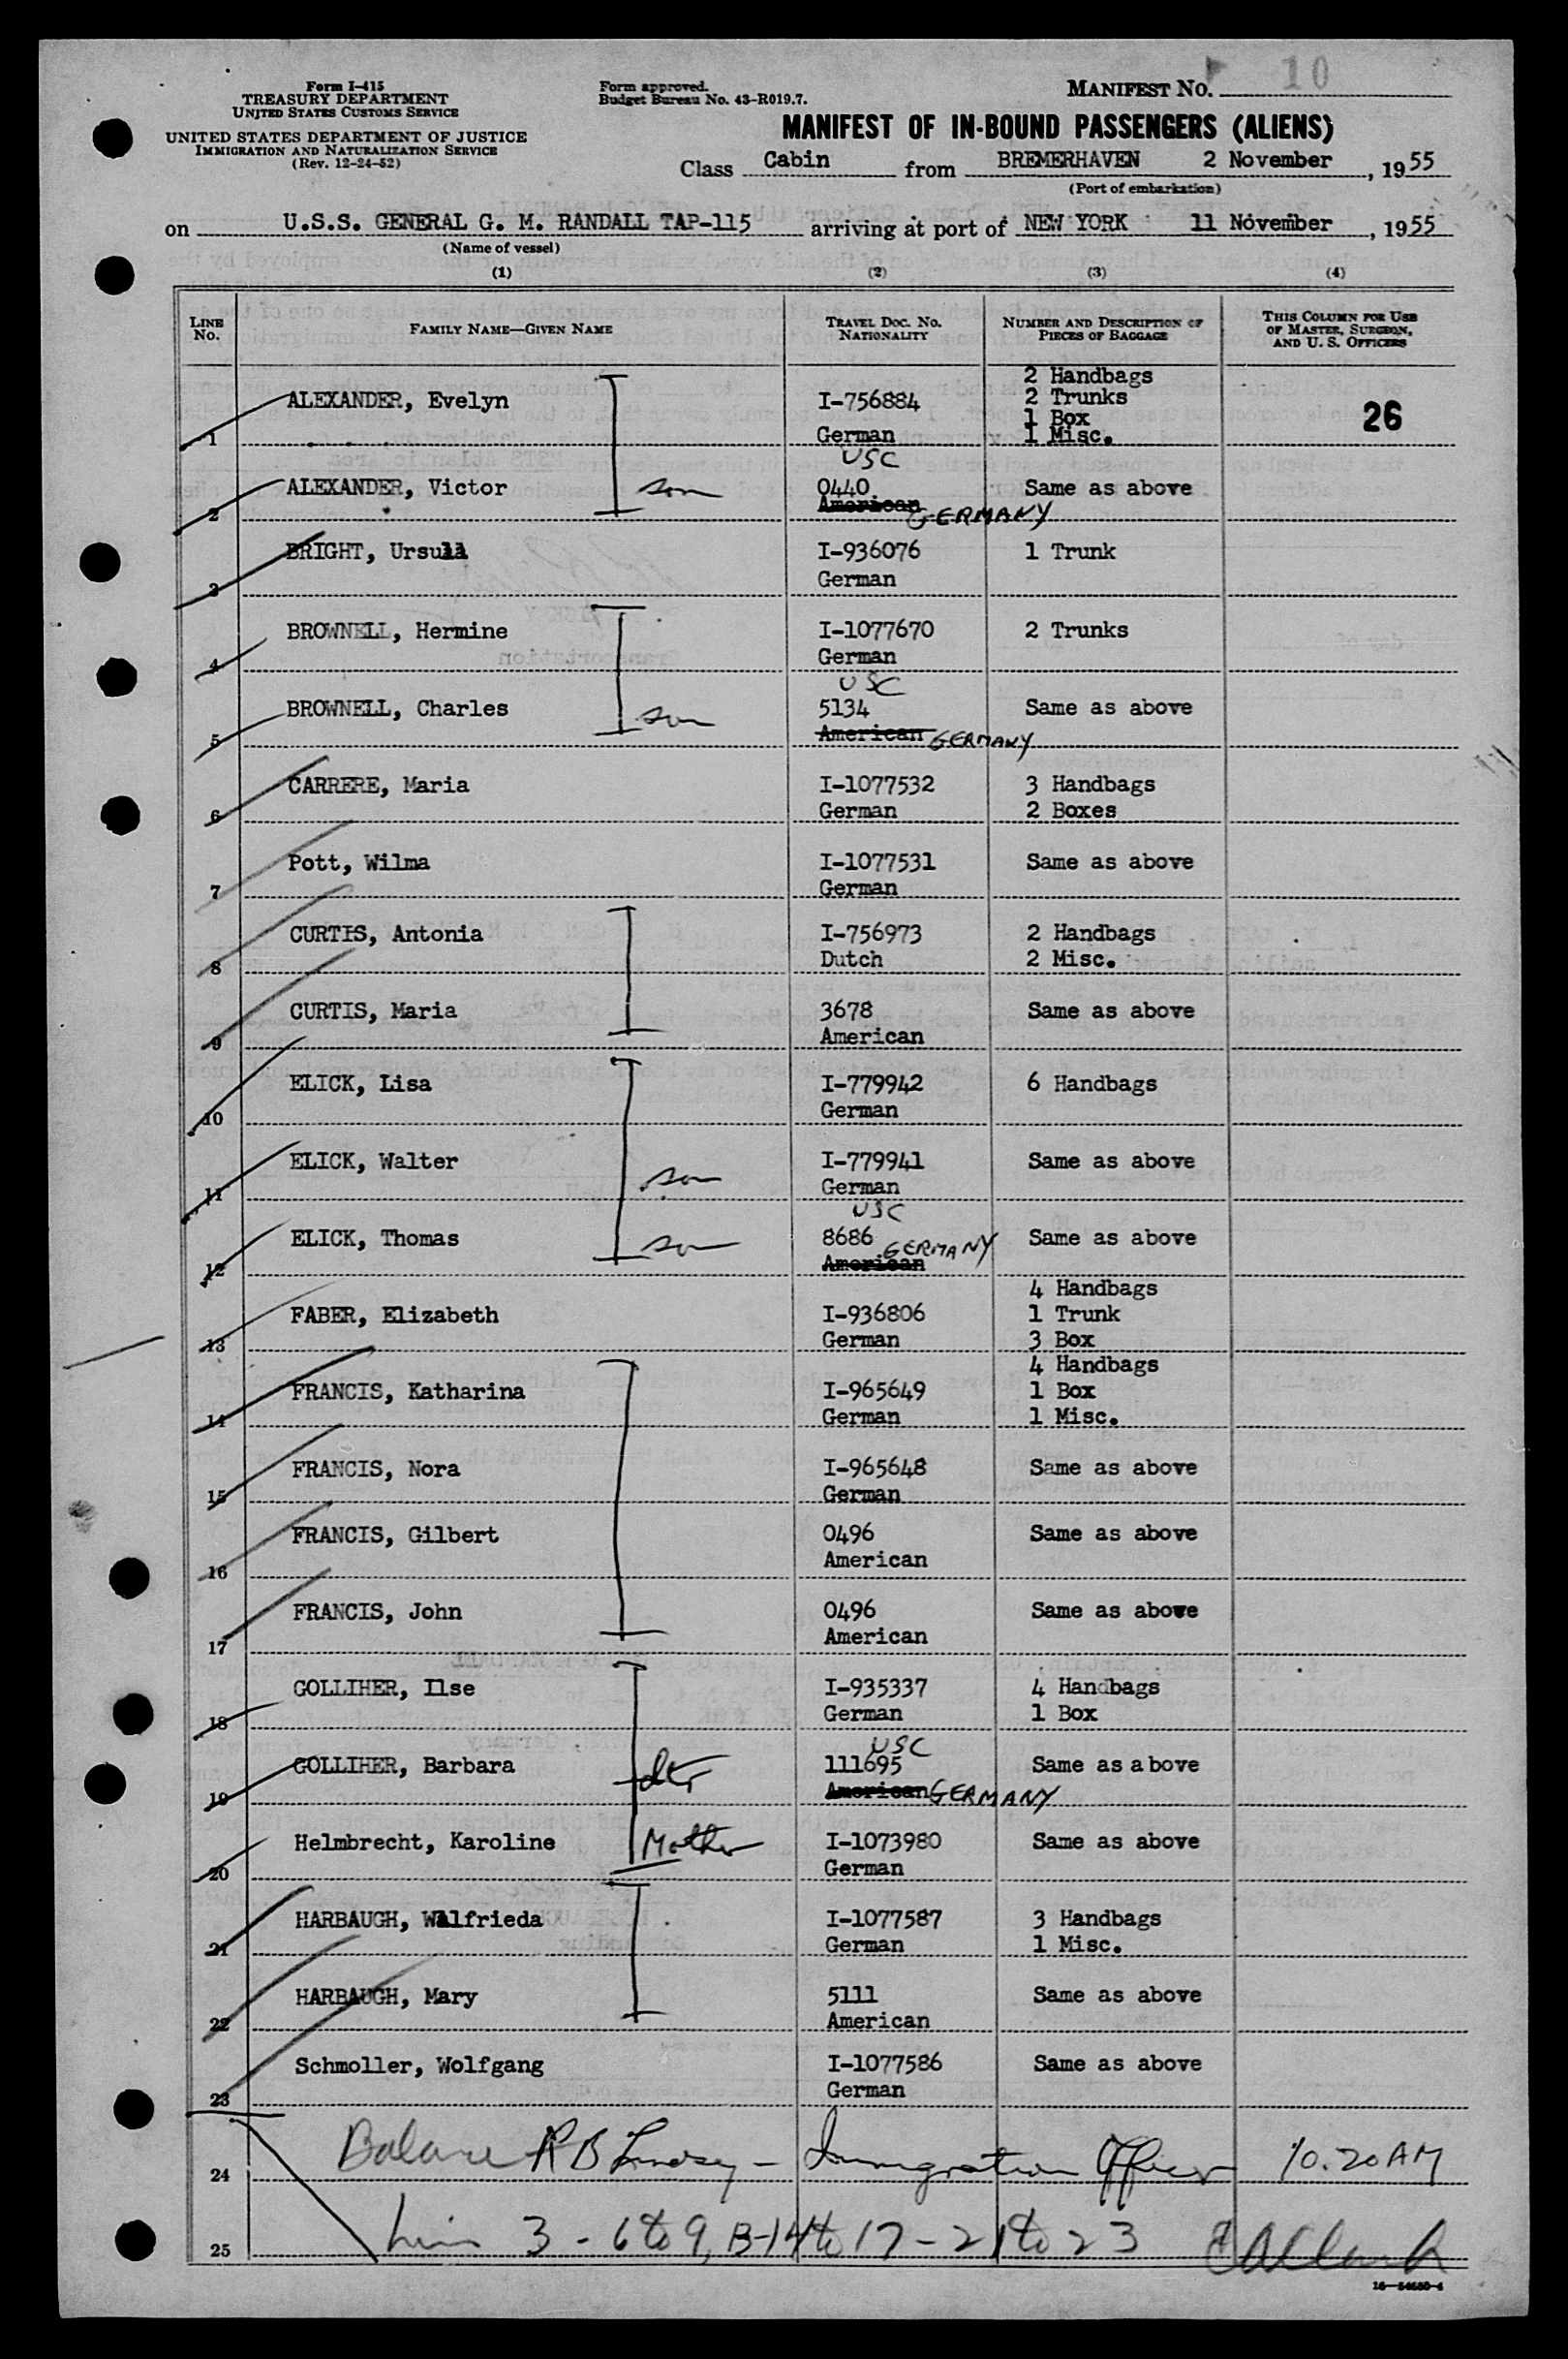 Form I-415
TREASURY DEPARTMENT
UNITED STATES CUSTOMS SERVICE
UNITED STATES DEPARTMENT OF JUSTICE
IMMIGRATION AND NATURALIZATION SERVICE
(Rev. 12-24-52)
Form approved.
Budget Bureau No. 43-R019.7.
MANIFEST NO. 10
MANIFEST OF IN-BOUND PASSENGERS (ALIENS)
Class Cabin from BREMERHAVEN 2 November, 1955
(Port of embarkation)
on U.S.S. GENERAL G. M. RANDALL TAP-115 arriving at port of NEW YORK 11 November, 1955
(Name of vessel)
(1) (2) (3) (4)
LINE NO. FAMILY NAME—GIVEN NAME TRAVEL DOC. NO. NATIONALITY NUMBER AND DESCRIPTION OF PIECES OF BAGGAGE THIS COLUMN FOR USE OF MASTER, SURGEON, AND U. S. OFFICERS
2 Handbags
ALEXANDER, Evelyn I-756884 2 Trunks 26
1 Box
1 German 1 Misc.
USC
ALEXANDER, Victor son 0440 Same as above
2 American GERMANY
BRIGHT, Ursula I-936076 1 Trunk
3 German
BROWNELL, Hermine I-1077670 2 Trunks
4 German
USC
BROWNELL, Charles son 5134 Same as above
5 American GERMANY
CARRERE, Maria I-1077532 3 Handbags
6 German 2 Boxes
Pott, Wilma I-1077531 Same as above
7 German
CURTIS, Antonia I-756973 2 Handbags
8 Dutch 2 Misc.
CURTIS, Maria 3678 Same as above
9 American
ELICK, Lisa I-779942 6 Handbags
10 German
ELICK, Walter son I-779941 Same as above
11 German
USC
ELICK, Thomas son 8686 Same as above
12 American GERMANY
4 Handbags
FABER, Elizabeth I-936806 1 Trunk
13 German 3 Box
4 Handbags
FRANCIS, Katharina I-965649 1 Box
14 German 1 Misc.
FRANCIS, Nora I-965648 Same as above
15 German
FRANCIS, Gilbert 0496 Same as above
16 American
FRANCIS, John 0496 Same as above
17 American
GOLLIHER, Ilse I-935337 4 Handbags
18 German 1 Box
USC
GOLLIHER, Barbara dtr 111695 Same as above
19 American GERMANY
Helmbrecht, Karoline Mother I-1073980 Same as above
20 German
HARBAUGH, Walfrieda I-1077587 3 Handbags
21 German 1 Misc.
HARBAUGH, Mary 5111 Same as above
22 American
Schmoller, Wolfgang I-1077586 Same as above
23 German
24 Balance R B Lindsey - Immigration Officer 10.20 AM
25 Line 3 - 6 to 9, 13-14 to 17 - 21 to 23
16—54680-4